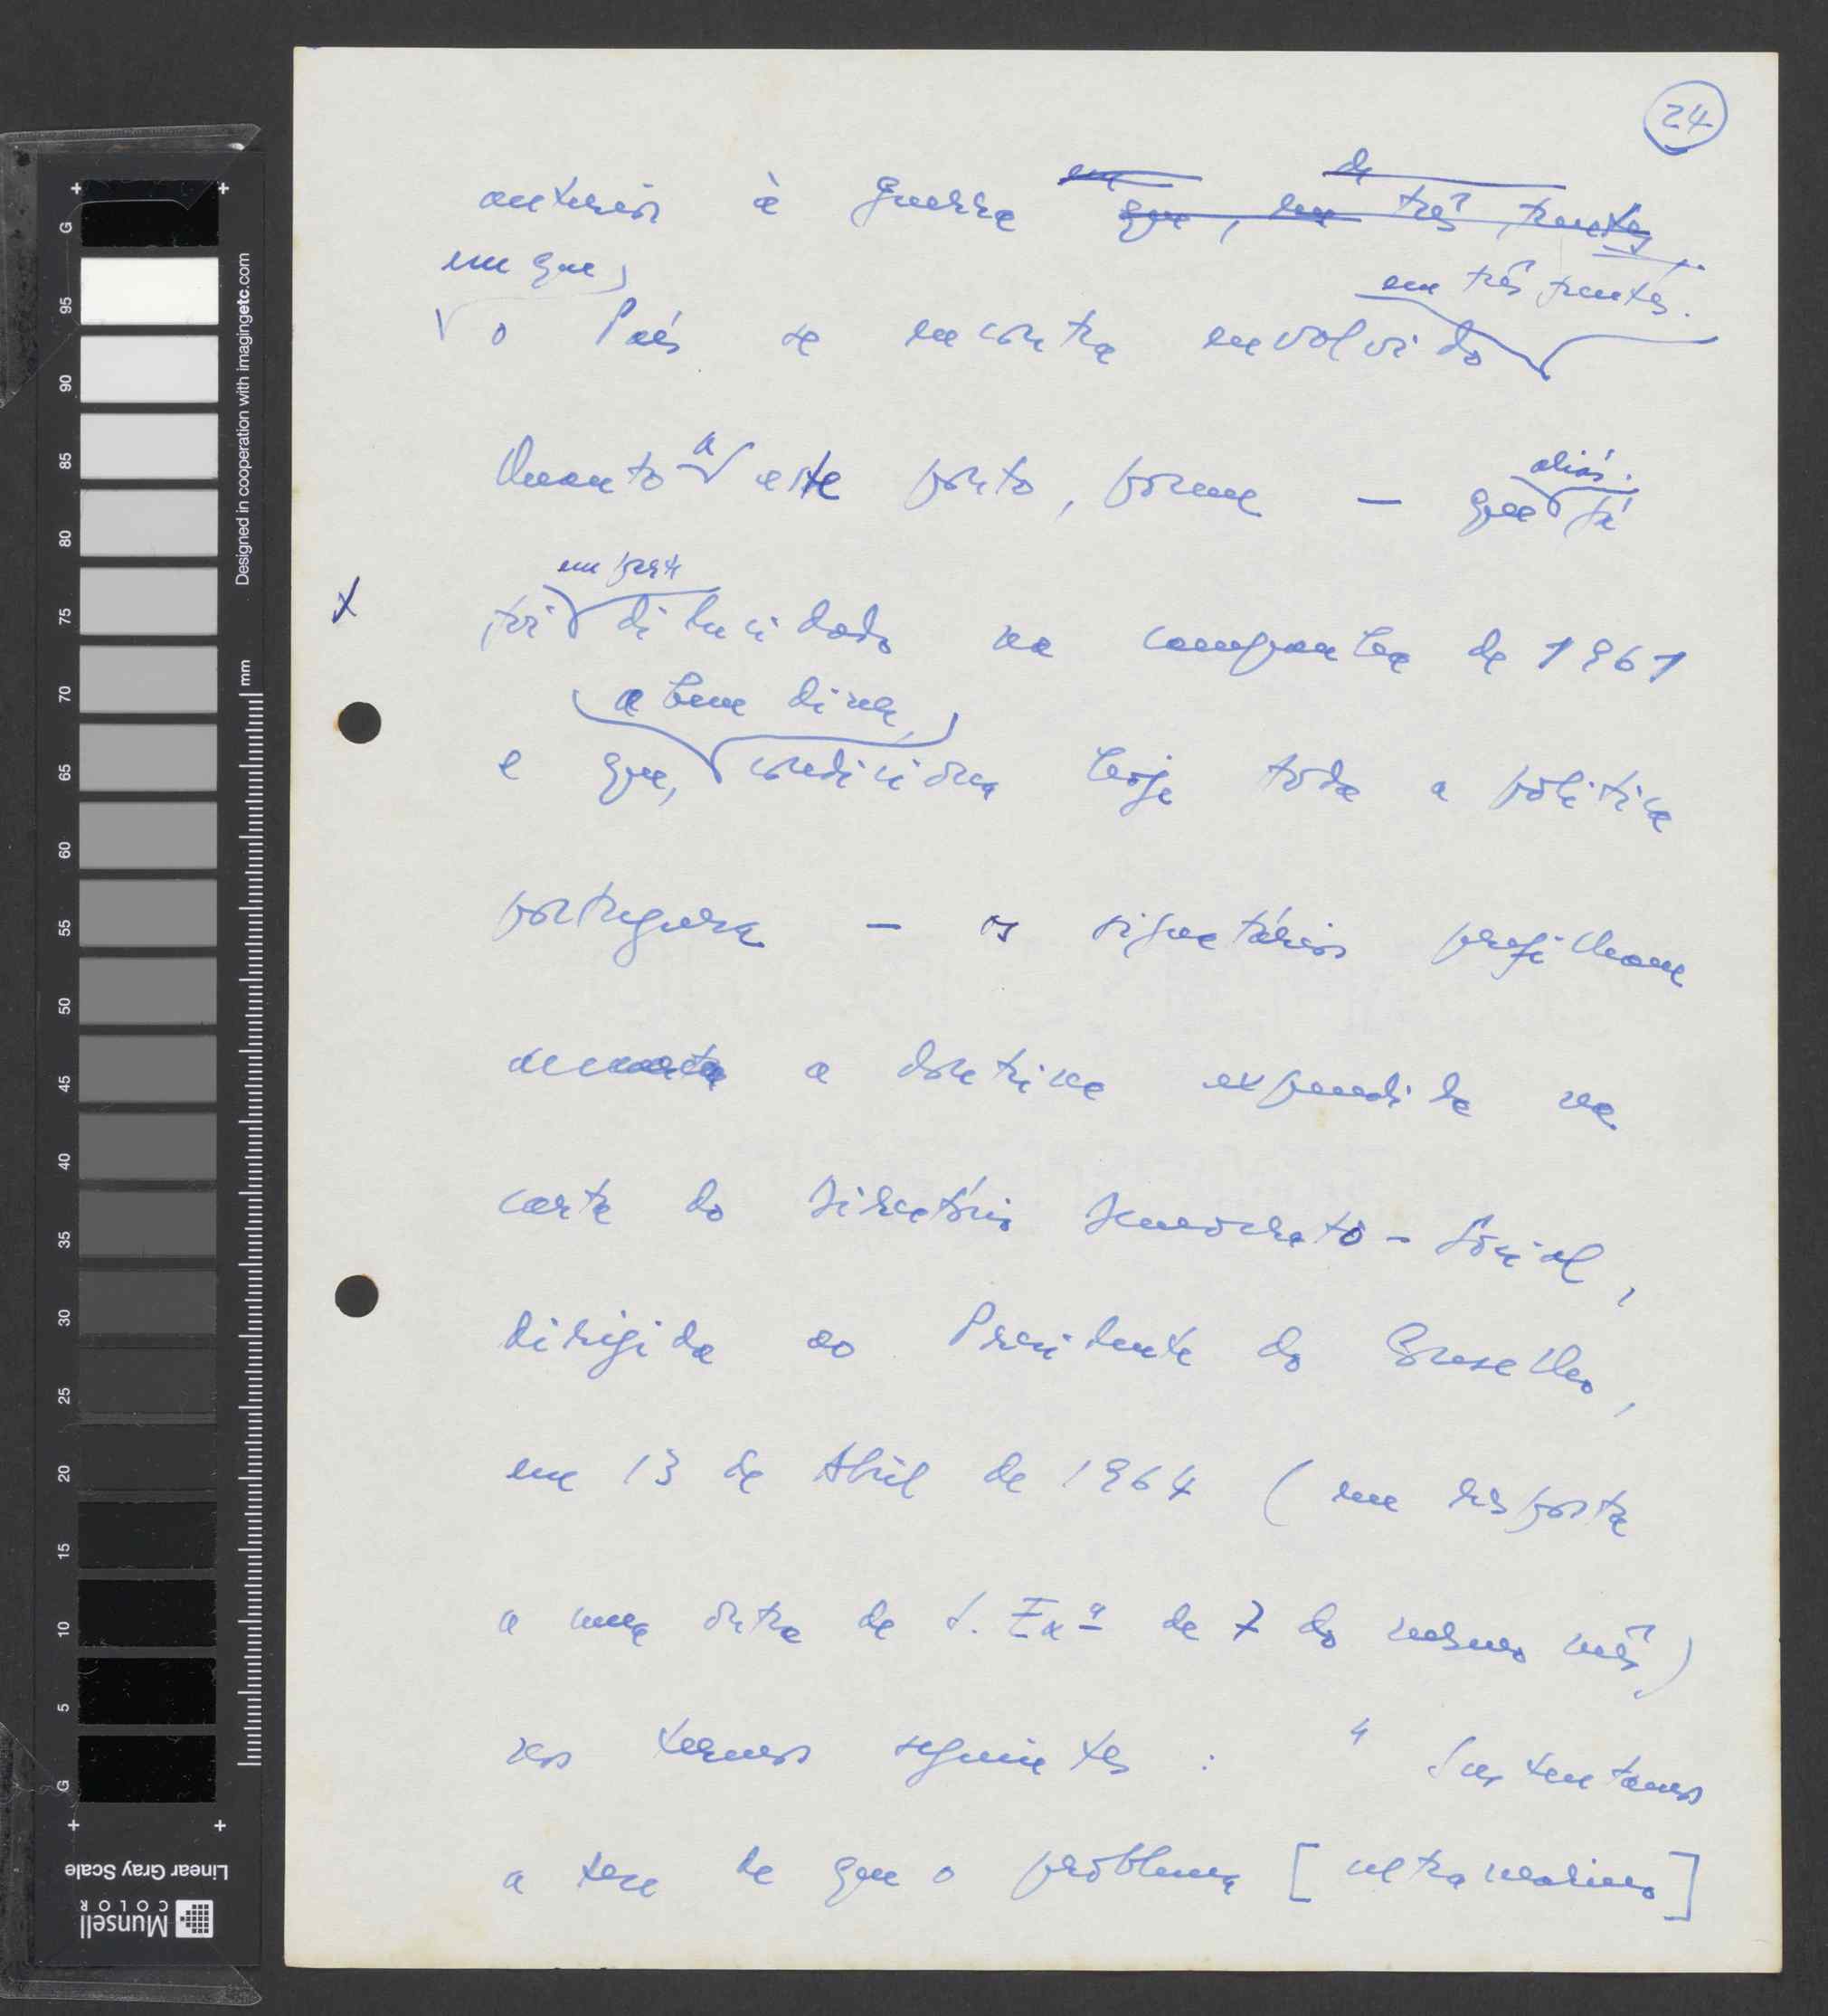 24
anterior à guerra ~~em~~ ~~que, em~~ ~~de~~ ~~três frentes~~
em que,
em três frentes.
o País se encontra envolvido
Quanto a este ponto, porém — que aliás já
em parte
x foi dilucidado na campanha de 1961
a bem dizer,
e que, condiciona hoje toda a política
portuguesa — os signatários perfilham
a doutrina expendida na
carta do Directório Democrato-Social,
dirigida ao Presidente do Conselho,
em 13 de Abril de 1964 (em resposta
a uma outra de S. Exª de 7 do mesmo mês)
nos termos seguintes: "Sustentamos
a tese de que o problema [ultramarino]
Designed in cooperation with imagingetc.com
mm
G 95 90 85 80 75 70 65 60 55 50 45 40 35 30 25 20 15 10 5 G
Linear Gray Scale
Munsell
COLOR